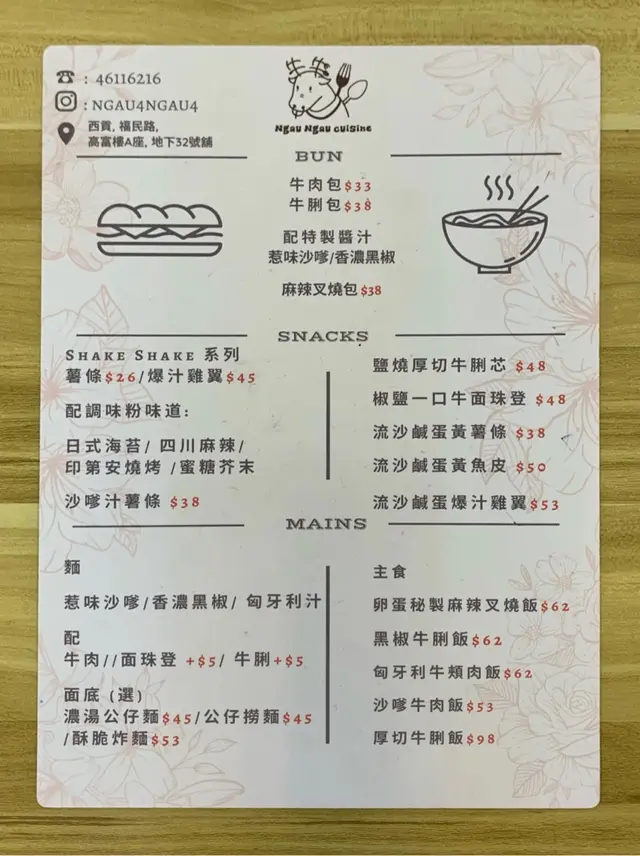 : 46116216
: NGAU4NGAU4
西貢, 福民路,
高富樓A座, 地下32號舖
牛牛
Ngau Ngau cuisine
BUN
牛肉包$33
牛脷包$38
配特製醬汁
惹味沙嗲/香濃黑椒
麻辣叉燒包$38
SNACKS
SHAKE SHAKE 系列
薯條$26/爆汁雞翼$45
配調味粉味道:
日式海苔/ 四川麻辣/
印第安燒烤 /蜜糖芥末
沙嗲汁薯條 $38
鹽燒厚切牛脷芯 $48
椒鹽一口牛面珠登 $48
流沙鹹蛋黃薯條 $38
流沙鹹蛋黃魚皮 $50
流沙鹹蛋爆汁雞翼$53
MAINS
麵
惹味沙嗲/香濃黑椒/ 匈牙利汁
配
牛肉//面珠登 +$5/ 牛脷+$5
面底 (選)
濃湯公仔麵$45/公仔撈麵$45
/酥脆炸麵$53
主食
卵蛋秘製麻辣叉燒飯$62
黑椒牛脷飯$62
匈牙利牛頰肉飯$62
沙嗲牛肉飯$53
厚切牛脷飯$98